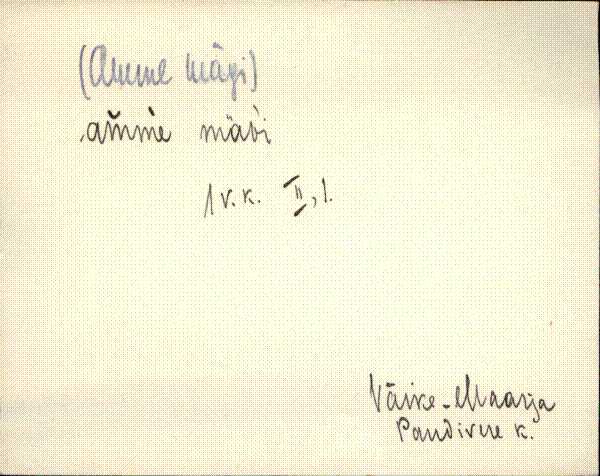 (Amme mägi)
amme mäbi
1 v.k. II, 1.
Väike-Maarja
Pandivere k.